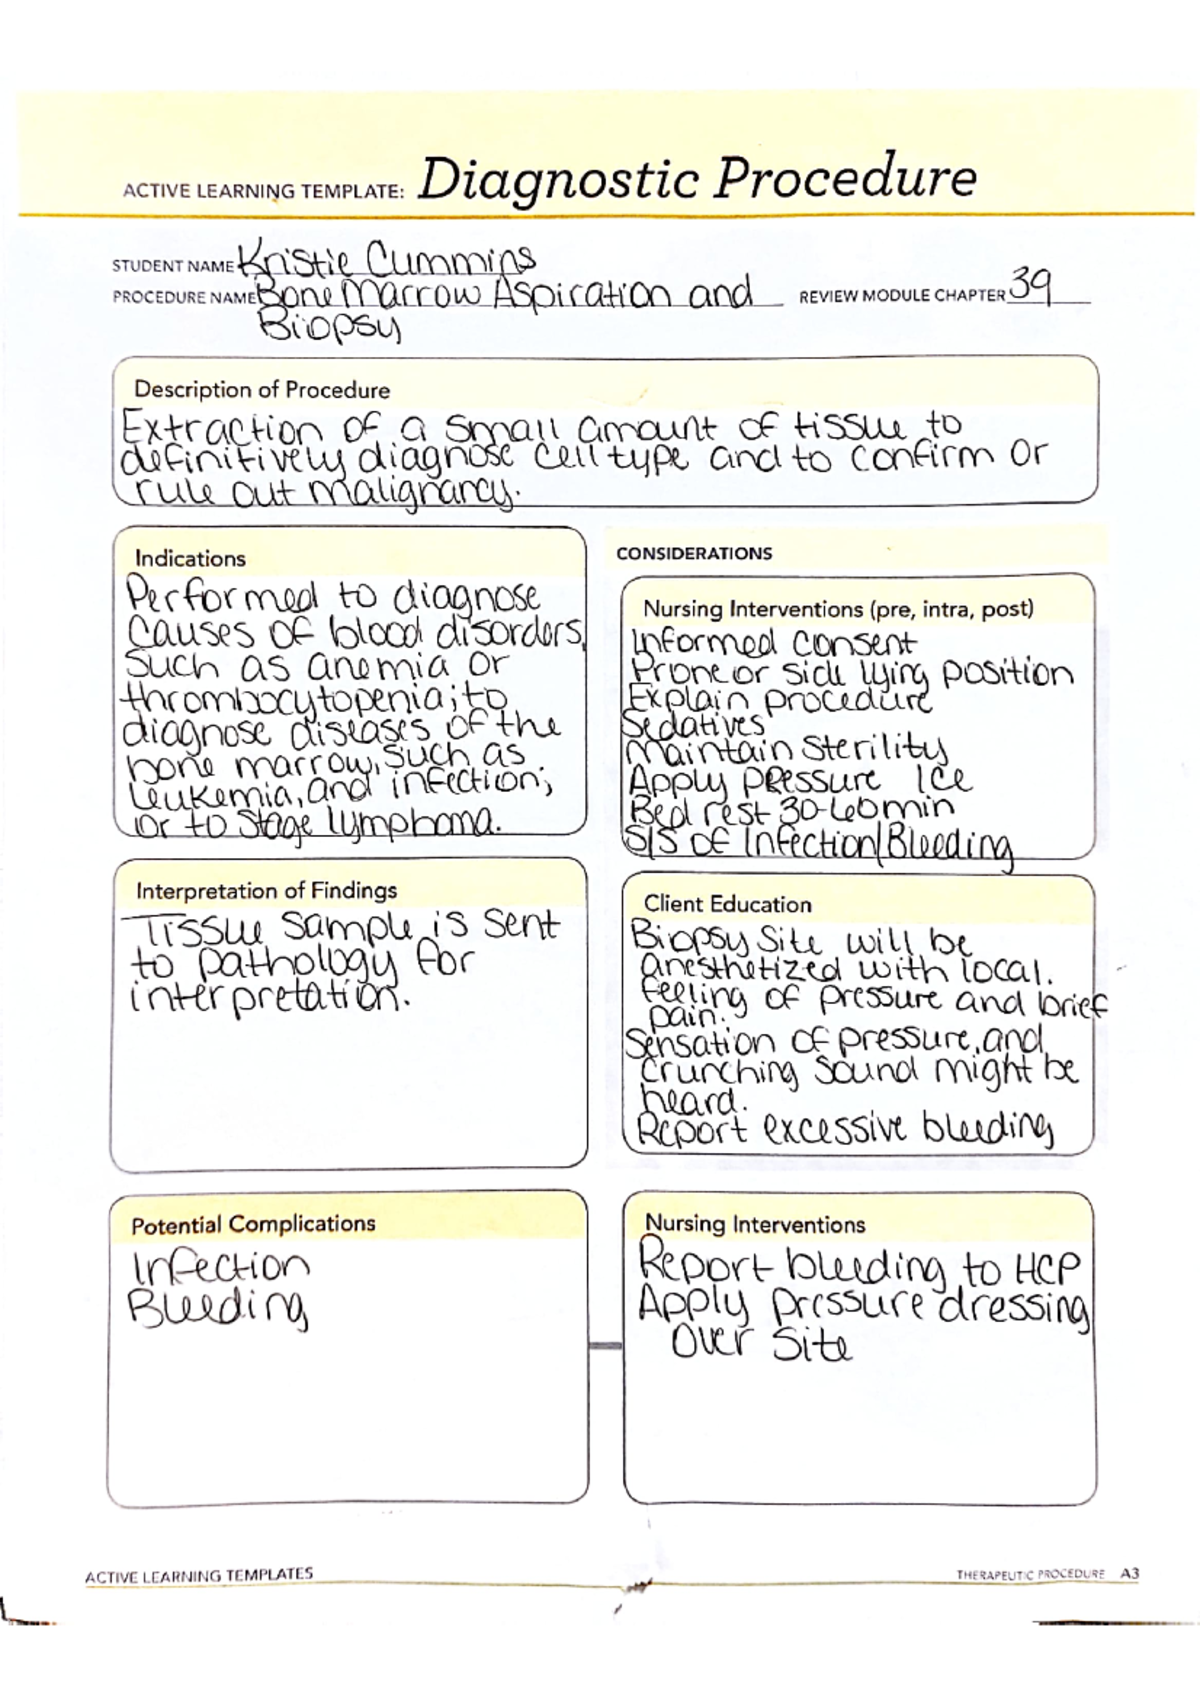 ACTIVE LEARNING TEMPLATE: Diagnostic Procedure
STUDENT NAME Kristie Cummins
PROCEDURE NAME Bone Marrow Aspiration and
Biopsy
REVIEW MODULE CHAPTER 39
Description of Procedure
Extraction of a small amount of tissue to
definitively diagnose cell type and to confirm or
rule out malignancy.
Indications
Performed to diagnose
causes of blood disorders,
such as anemia or
thrombocytopenia; to
diagnose diseases of the
bone marrow, such as
leukemia, and infection;
or to stage lymphoma.
CONSIDERATIONS
Nursing Interventions (pre, intra, post)
Informed consent
Prone or side lying position
Explain procedure
Sedatives
Maintain sterility
Apply pressure Ice
Bed rest 30-60 min
S/S of Infection/Bleeding
Interpretation of Findings
Tissue sample is sent
to pathology for
interpretation.
Client Education
Biopsy site will be
anesthetized with local.
feeling of pressure and brief
pain.
Sensation of pressure, and
crunching sound might be
heard.
Report excessive bleeding
Potential Complications
Infection
Bleeding
Nursing Interventions
Report bleeding to HCP
Apply pressure dressing
over site
ACTIVE LEARNING TEMPLATES
THERAPEUTIC PROCEDURE A3